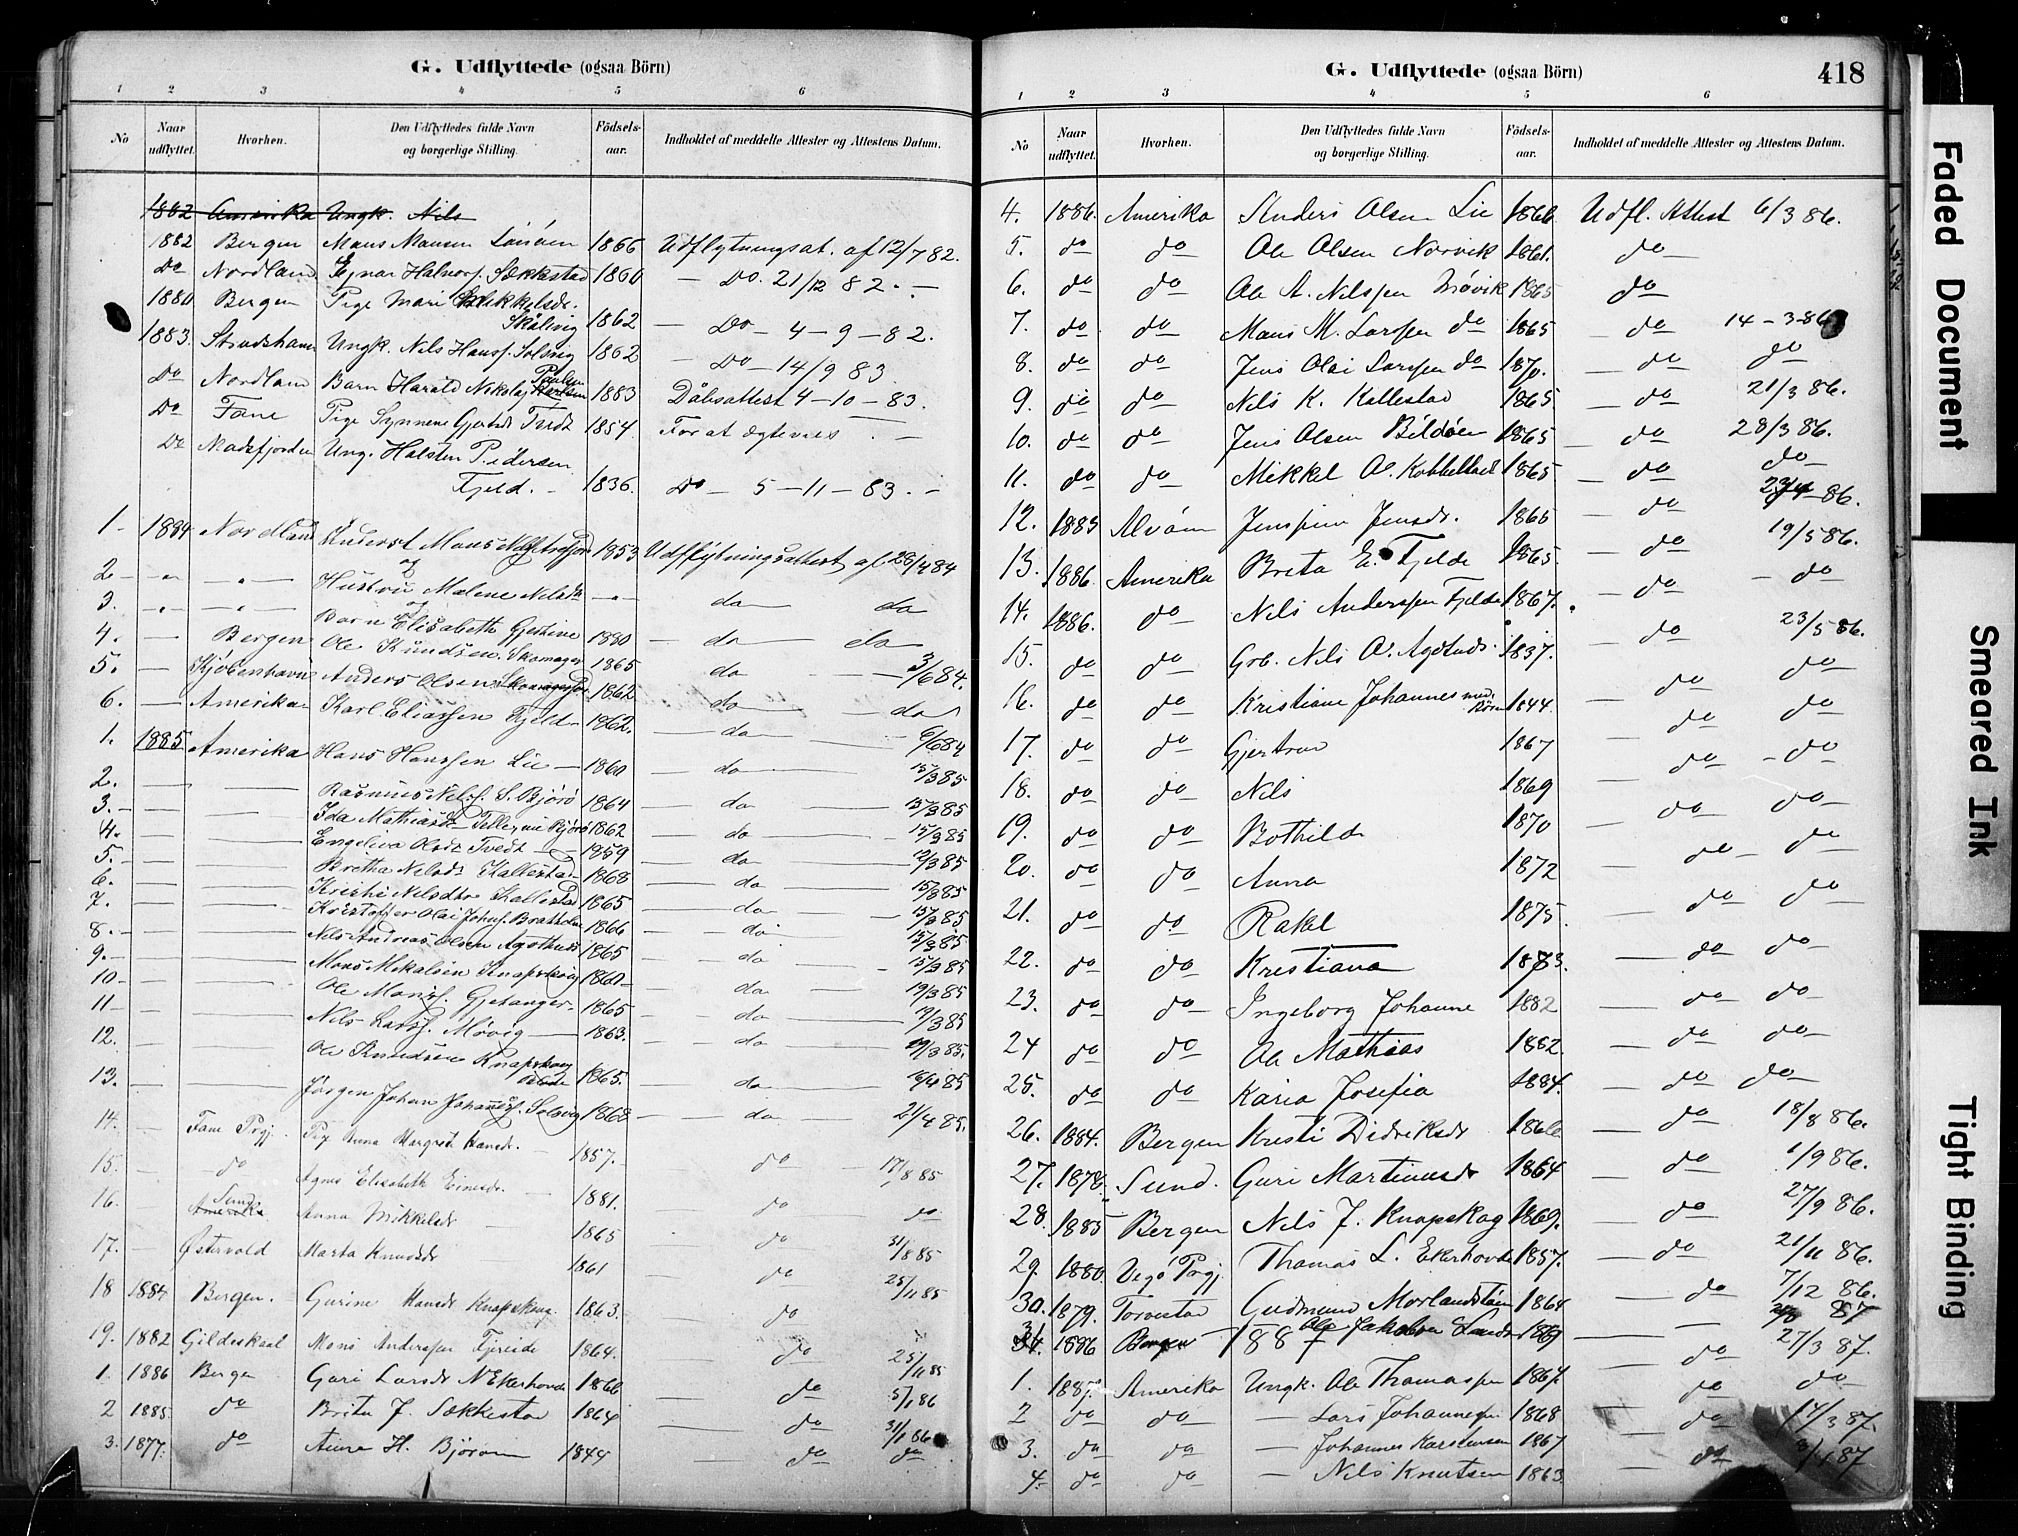 G. Udflyttede (ogsaa Börn)
1 2 3 4 5 6
No Naar udflyttet. Hvorhen. Den Udflyttedes fulde Navn og borgerlige Stilling. Födsels-aar. Indholdet af meddelte Attester og Attestens Datum.
1882 Amerika Ungk. Nils
1882 Bergen Mons Monsen 1866 Udflytningsat. af 12/7 82.
Do Nordland Halvors. Sækkestad 1860 — Do. 21/12 82. —
1880 Bergen Pige Mari Mikkelsdr.
Skålvig 1862 — Do — 4 — 9 — 82.
1883. Ungk. Nils Hansf. Solsvig 1862 — Do — 14/9 83.
Do Nordland Barn Harald Nikolaj Paulsen 1883 Dåbsattest 4 — 10 — 83.
Do Fane Pige Synneve Tvedt 1854. For at ægtevies . —
Do Ung. Halsten Pedersen
Fjeld. — 1836. Do — 5 — 11 — 83. —
1. 1884 Nordland 1853 Udflytningsattest af 28/4 84
og
2. — " — " — Hustru Malene Nelsdtr — " — da — da
og
3. — " — " — Barn Elisabeth 1880 — da — da
4. — Bergen Ole Knudsen Skomager 1865 — da — 3/6 84.
5. — Kjøbenhavn Anders Olsen 1862 — da — da
6. — Amerika Karl Eliassen Fjeld 1862. — da — 6/6 84
1. 1885 Amerika Hans Hanssen Lie — 1860 — da — 15/3 85
2. — — Rasmus Nels. S. Bjørø 1864 — da — 15/3 85
3. — — Ida Mathiasdtr Bjørø 1862 — da — 15/3 85
4. — — Engelina Olsdtr Tvedt — 1859 — da — 12/3 85
5. — — Bretha Nelsdtr Kallestad 1868 — da — 15/3 85
6. — — Kristi Nelsdtr Kallestad 1865 — da — 15/3 85
7. — — Kristoffer Olai Johns. Bratholm 1866 — da — 15/3 85
8. — — Nils Andreas Olsen Agothnes 1865 — da — 15/3 85
9. — — Mons Mikalsen Knapskog 1860 — da — 19/3 85
10 — — Ole Monsf. Gjetanger 1865 — da — 19/3 85
11 — — Nils Larsf. Møvig — 1863. — da — 19/3 85.
12. — — Ole Knudsen Knapskog 1865. — da — 16/4 85
13. — — Jørgen Johan Johannesf. Solsvig 1868 — da — 21/4 85.
14. — Fane Prgj. Pig Anna Margrete Hansdr. — 1857. — do 17/8 85
15. — do Agnes Elisabeth — 1881. — do do
16. Sund Amerika Anna Mikkelsdr — 1865 — do 31/8 85
17. — Østervold Marta Knudsdr 1861 — do 25/11 85
18 1884 Bergen. Gurine Hansdr Knapskog. 1863. — do
19. 1882 Gildeskaal Mons Anderssen Fjereide 1864. — do 25/11 85
1. 1886 Bergen Guri Larsdr N Ekerhovd 1866 — do 5/1 86
2 1885. do Brita J. Sækkestad 1864 — do 31/1 86
3. 1877. do Anna H. Bjorøen 1844 — do do
G. Udflyttede (ogsaa Börn) 418
1 2 3 4 5 6
No Naar udflyttet. Hvorhen. Den Udflyttedes fulde Navn og borgerlige Stilling. Födsels-aar. Indholdet af meddelte Attester og Attestens Datum.
4. 1886. Amerika Anders Olsen Lie 1866 Udfl. Attest 6/3 86.
5. do do Ole Olsen Norvik 1861. do
6. do do Ole A. Nilssen Møvik 1865 do
7. do do Mons M. Larssen do 1865 — do 14 — 3 86
8. do do Jens Olai Larssen do 1870. — do do
9. do do Nils K. Kallestad 1865 — do 21/3 86.
10. do do Jens Olsen Bildøen 1865 — do 28/3 86.
11. do do Mikkel O. 1865 — do do
12. 1883 Alvøen Jensine Jensdr. 1865 — do 23/4 86.
13. 1886. Amerika Brita E. Fjelde 1865. — do 19/5 86.
14. 1886. do Nils Anderssen Fjelde 1867. — do — do
15. do do Grb. Nils O. Agotnes 1837. — do 23/5 86.
16. do do Kristiane Johannes med Børn 1844. — do do
17. do do Gjertrud 1867 — do do
18. do do Nils 1869 — do — do
19. do do Bothilde 1870 — do do
20. do do Anna 1872 — do do
21. do do Rakel 1875. — do do
22. do do Kristiana 1873. — do do
23. do do Ingeborg Johanne 1882 — do do
24 do do Ole Mathias 1882. — do do
25. do do Karia Josefia 1884. — do do
26. 1884. Bergen Kristi Didriksdr 1866 — do 18/8 86.
27. 1878. Sund. Guri Martinusdr 1864 — do 1/9 86.
28. 1885 Bergen Nils J. Knapskog 1869. — do 27/9 86.
29. 1880. Vegö Prgj. Thomas L. Ekerhovd 1857. — do 21/11 86.
30. 1879. Torvestad Gudmund Morlandstøen 1864 — do 7/12 86.
31. 1886 Bergen Ole Jakobsen 1869 — 87
1887
1. 1887. Amerika Ungk. Ole Thomassen 1867. — do 27/3 87.
2 do do — Lars Johannessen 1868 — do do
3. do do — Johannes Karstensen 1867 — do 17/3 87.
4. do do — Nils Knutsen 1863. — do 3/4 87
Faded Document
Smeared Ink
Tight Binding